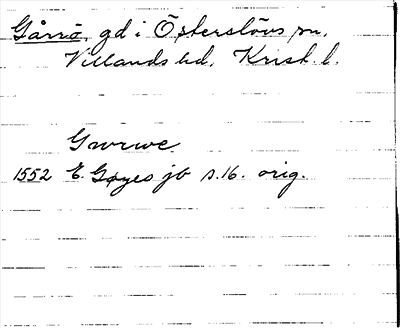 Gårrö, gd i Österslövs sn,
Villands hd, Krist. l.
Gwrwe
1552 E. Gøyes jb s.16. orig.